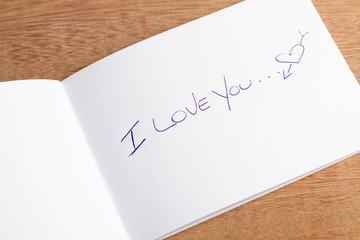 I LOVE YOU...